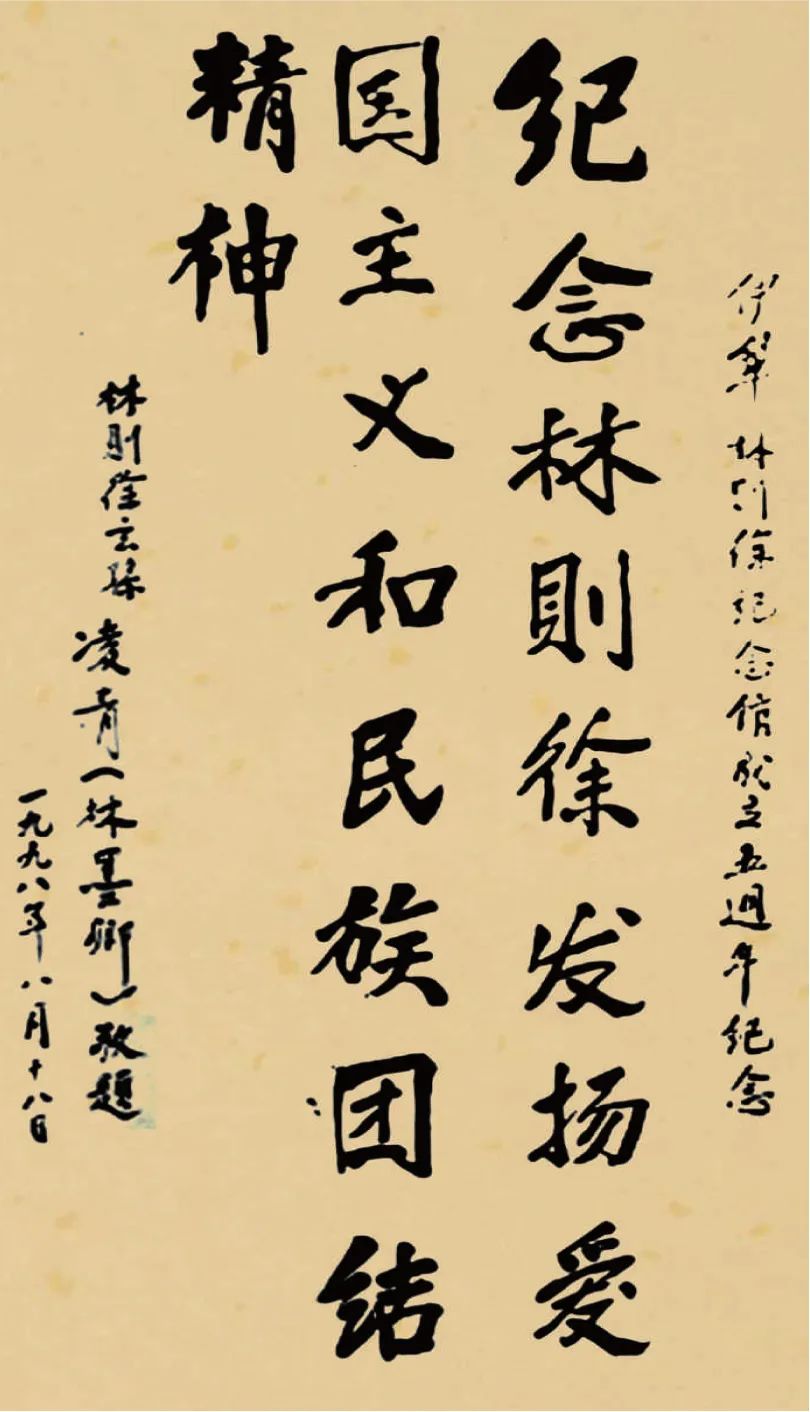 伊犁 林则徐纪念馆成立五週年纪念
纪念林則徐发扬爱
国主义和民族团结
精神
林則徐玄孫 凌青(林墨卿)敬題
一九九八年八月十八日